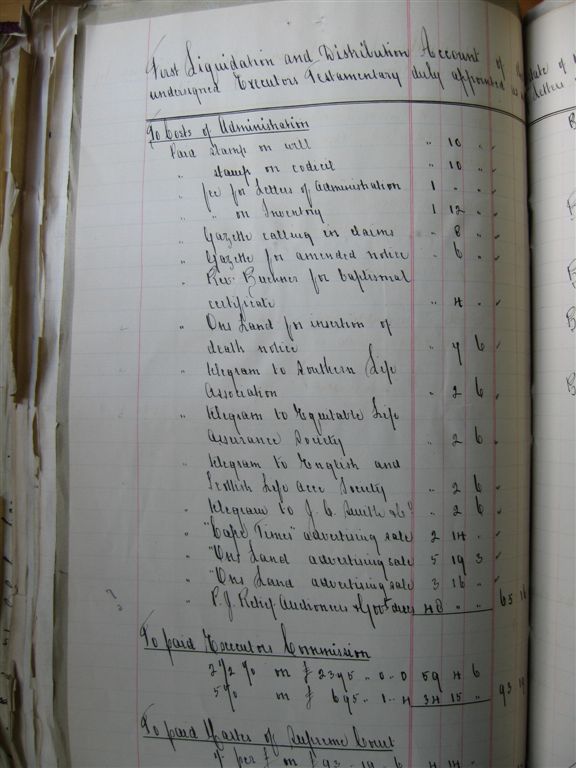 First Liquidation and Distribution Account of
undersigned Executors Testamentary duly appointed
To Costs of Administration
Paid stamp on will " 10 " "
" stamp on codicil " 10 " "
" fee for Letters of Administration 1 " "
" " on Inventory 1 12 " "
" Gazette calling in claims " 8 " "
" Gazette for amended notice " 6 " "
" Rev. Buchner for baptismal
certificate " 4 " "
" Ons Land for insertion of
death notice " 7 6
" telegram to Southern Life
Association " 2 6
" telegram to Equitable Life
Assurance Society " 2 6
" telegram to English and
Scottish Life Asce Society " 2 6
" telegram to J. C. Smith & Co " 2 6
" "Cape Times" advertising sale 2 14 "
" "Ons Land advertising sale 5 19 3
" "Ons Land advertising sale 3 16 "
" P. J. Retief Auctioneers & Govt dues 48 " " 65 16
To paid Executors Commission
2 1/2 % on £ 2395 " 0 " 0 59 4 6
5 % on £ 695 " 1 " 4 34 15 " 93 19
To paid Master of Supreme Court
per £ on £ 93 " 19 " 6 4 14 "